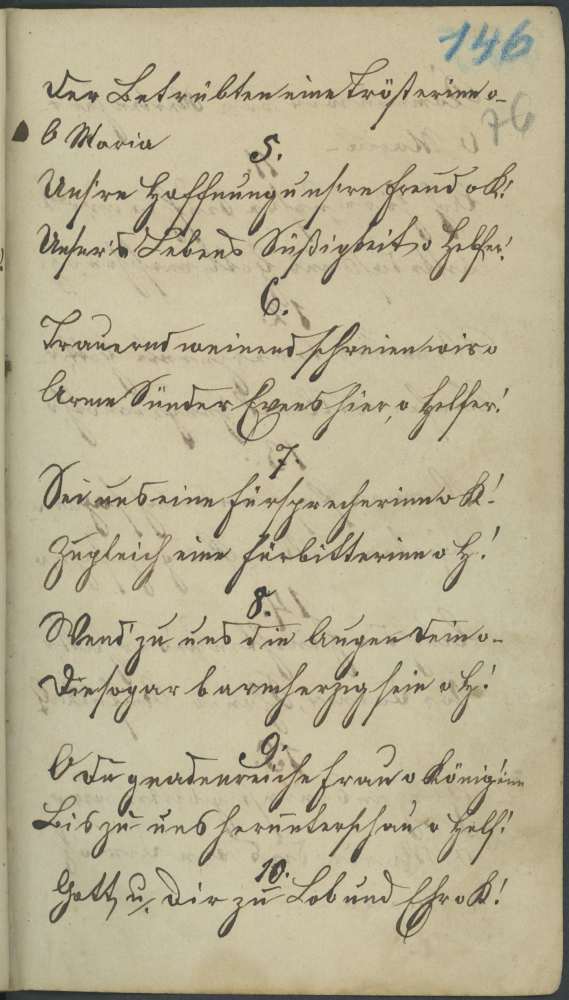 146
76
Der Betrübten eine Trösterinn o-
O Maria
5.
Uns're Hoffnung uns're Freud o K!
Unser's Lebens Süßigkeit o Helfer!
6.
Trauernd weinend schreien wir o
Arme Sünder Evens hier, o Helfer!
7.
Sei uns eine Fürsprecherinn o K!
Zugleich eine Fürbitterinn o H!
8.
Wend' zu uns die Augen dein o-
Die sogar barmherzig sein o H!
9.
O du gnadenreiche Frau o Königinn
Bis zu uns herunterschau o Helf!
10.
Gott u. Dir zu Lob und Ehr o K!